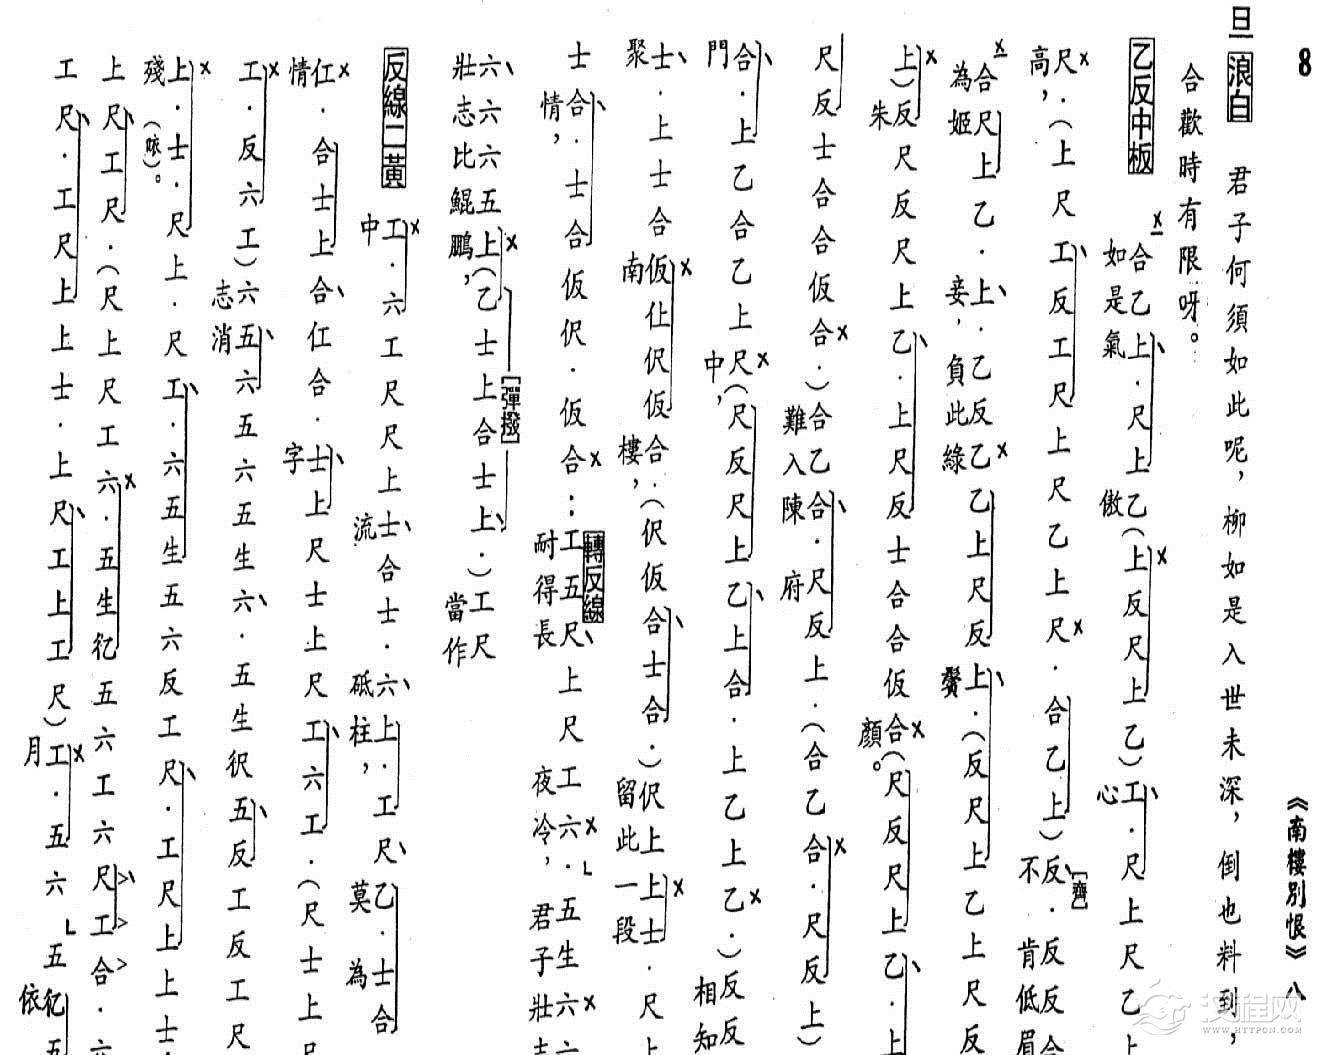 8
《南樓別恨》 八
旦 浪白 君子何須如此呢，柳如是入世未深，倒也料到，
合歡時有限呀。
乙反中板 合乙上．尺上乙（上反尺上乙）工．尺上尺乙上
如是氣 傲 心
尺．（上尺工反工尺上尺乙上尺．合乙上）反．反反合
高， 不 肯低眉
[齊]
合尺上乙．上．乙反乙乙上尺反上．（反尺上乙上尺反
為姬 妾，負此綠 鬢
上）反尺反尺上乙．上尺反士合合仮合（尺反尺上乙．上
朱 顏。
尺反士合合仮合．）合乙合．尺反上．（合乙合．尺反上）
難入陳 府
合．上乙合乙上尺（尺反尺上乙上合．上乙上乙．）反反
門 中， 相知
士．上士合仮仩伬仮合．（伬仮合士合．）伬上上士．尺上
聚 南 樓， 留此一段
士合．士合仮伬．仮合：工五尺上尺工六．五生六六
情， 耐得長 夜冷，君子壯志
轉反線
六六六五上（乙士上合士上．）工尺
壯志比鯤鵬， 當作
[彈撥]
反線二黃 工．六工尺尺上士合士．六上．工尺乙．士合
中 流 砥柱， 莫 為
仜．合士上合仜合．士上尺士上尺工六工．（尺士上尺
情 字
工．反六工）六五六五六五生六．五生伬五反工反工尺
志消
上．士．尺上．尺工．六五生五六反工尺．工尺上上士．
殘（咳）。
上尺工尺．（尺上尺工六．五生亿五六工六尺工合．六
工尺．工尺上上士．上尺工上工尺）工．五六五亿五
月 依
汉程网
WWW.HTTPCN.COM